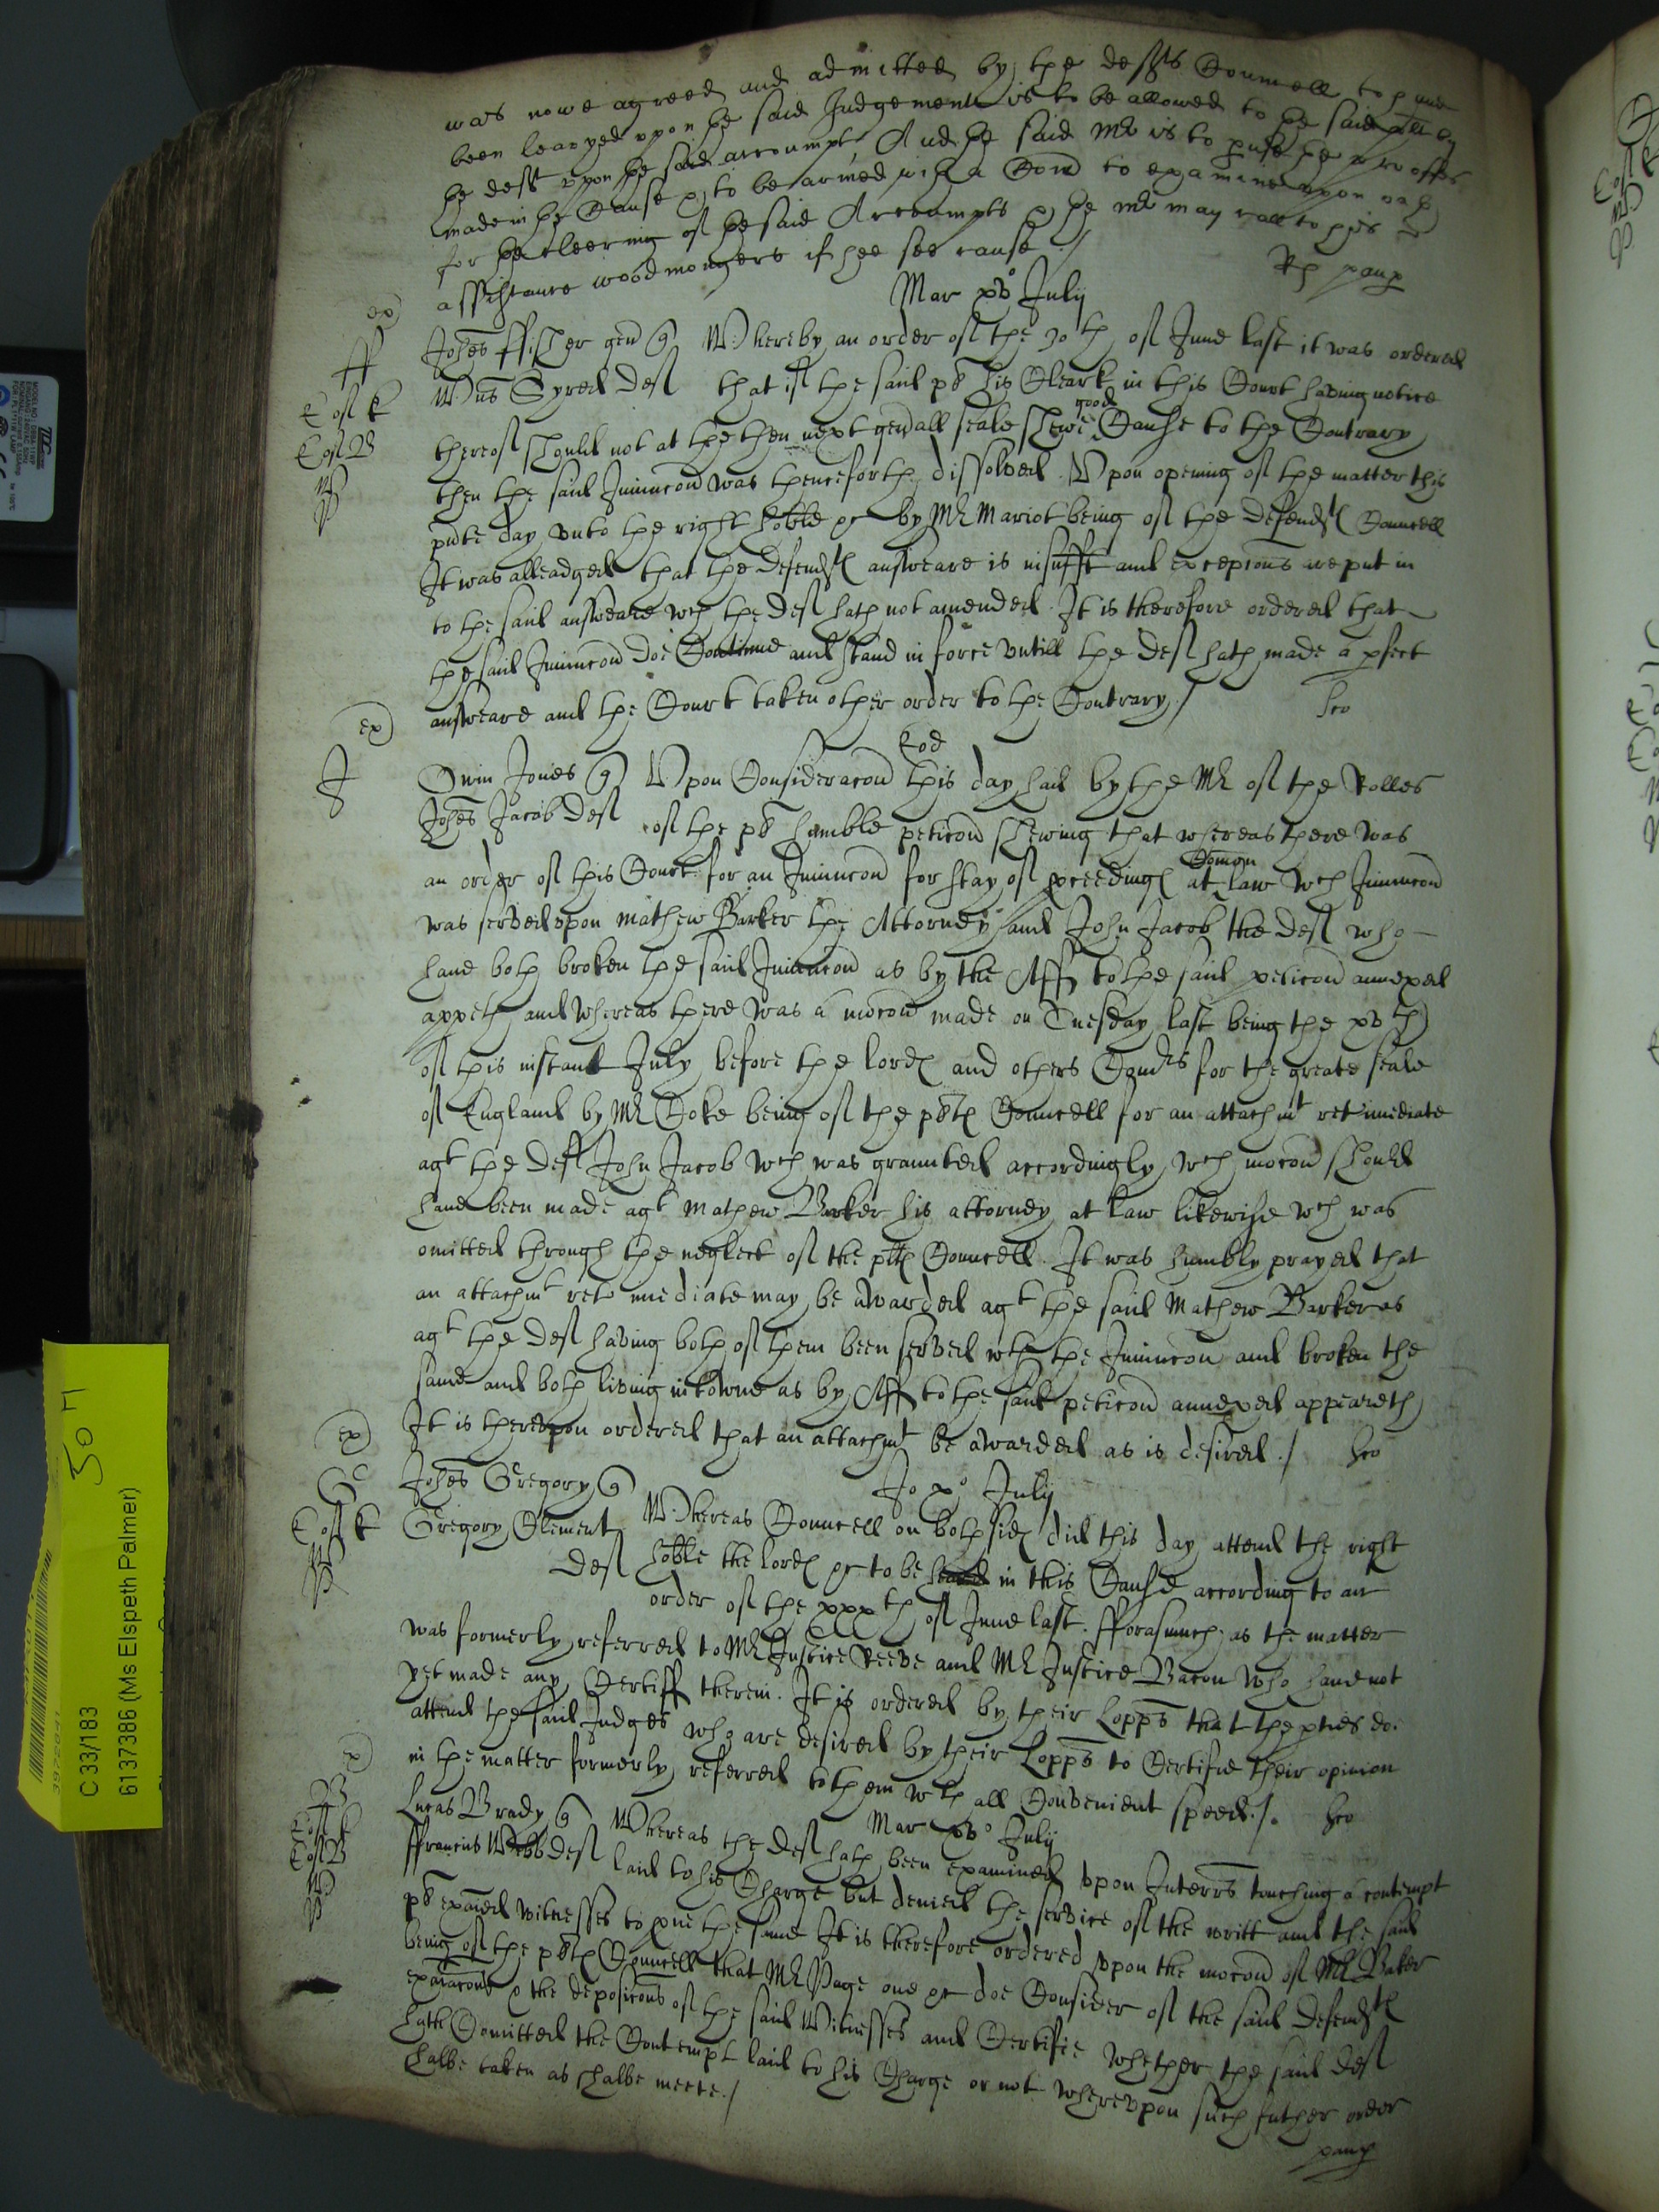 was nowe agreed and admitted by the defts Councell to have
been leavyed upon the said Judgement is to be allowed to the said plt by
the deft upon the said accompt, And the said Mr is to puse the prooffes
made in the Cause & to be armed with a Com to examine upon oath
for the cleering of the said Accompts & the Mr may call to his
assistance woodmongers if hee see cause ./
Mar xv° July
Johes ffisher gen Q Whereby an order of the 30th of June last it was ordered
Wms Syred def that if the said pl his Clark in this Court having notice
thereof should not at the then next genall seale shewe good Cause to the Contrary
then the said Iniuncon was thenceforth dissolved. Upon opening of the matter this
pnte day unto the right hoble &c by Mr Mariot being of the defendts Councell
It was alleadged that the defendts answeare is insufft and excepcions are put in
to the said answeare wch the def hath not amended. It is therefore ordered that
the said Iniuncon doe Continue and stand in force untill the def hath made a pfect
answeare and the Court taken other order to the Contrary ./
Eod
Owin Jones Q Upon Consideracon this day had by the Mr of the Rolles
Johes Jacob def of the pl humble peticon shewing that whereas there was
an order of this Court for an Iniuncon for stay of pceedings at Comon law wch Iniuncon
was served upon Mathew Barker the Attorney and John Jacob the def who
have both broken the said Iniuncon as by the Aff to the said peticon annexed
appeth and whereas there was a mocon made on Tuesday last being the xvth
of this instant July before the lords and others Comrs for the greate seale
of England by Mr Coke being of the plts Councell for an attachmt ret imediate
agt the def John Jacob wch was graunted accordingly, wch mocon should
have been made agt Mathew Barker his attorney at law likewise wch was
omitted through the neglect of the plts Councell. It was humbly prayed that
an attachmt reto imediate may be awarded agt the said Mathew Barker as
agt the def having both of them been served wth the Iniuncon and broken the
same and both living in towne as by Aff to the said peticon annexed appeareth
It is thereupon ordered that an attachmt be awarded as is desired ./
Johes Gregory Q Jo x° July
Gregory Clement Whereas Councell on both sides did this day attend the right
def hoble the lords &c to be heard in this Cause according to an
order of the xxxth of June last. fforasmuch as the matter
was formerly referred to Mr Justice Reeve and Mr Justice Bacon who have not
yet made any Certiff therein. It is ordered by their Lopps that the pties doe
attend the said Judges who are desired by their Lopps to Certifie their opinion
in the matter formerly referred to them wth all Convenient speed ./.
Mar xv° July
Lucas Brady Q Whereas the def hath been examined upon Interrs touching a contempt
ffrancus Webb def laid to his Charge but denied the service of the writt and the said
pl exaied witnesses to pve the same It is therefore ordered upon the mocon of Mr Baker
being of the plts Councell that Mr Page one &c doe Consider of the said defendts
exaiacons & the deposicons of the said Witnesses and Certifie whether the said def
hath Comitted the Contempt laid to his Charge or not whereupon such further order
shalbe taken as shalbe meete ./
C 33/183
6137386 (Ms Elspeth Palmer)